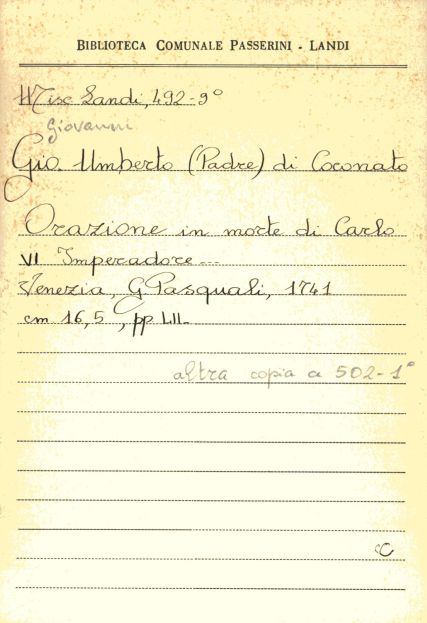 BIBLIOTECA COMUNALE PASSERINI - LANDI
Misc Landi, 492-9°
Giovanni
Gio. Umberto (Padre) di Coconato
Orazione in morte di Carlo
VI Imperadore...
Venezia, G Pasquali, 1741
cm 16,5, pp LII.
altra copia a 502-1°
C